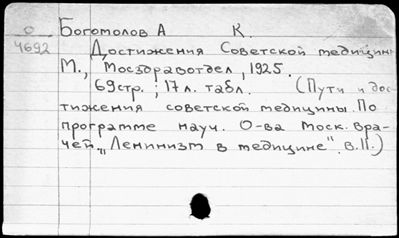 О Богомолов А К.
4692 Достижения Советской медицины
М., Мосздравотдел, 1925.
69стр.; 17л. табл. (Пути и дос-
тижения советской медицины. По
программе науч. О-ва Моск. вра-
чей „Ленинизм в медицине". в.II.)